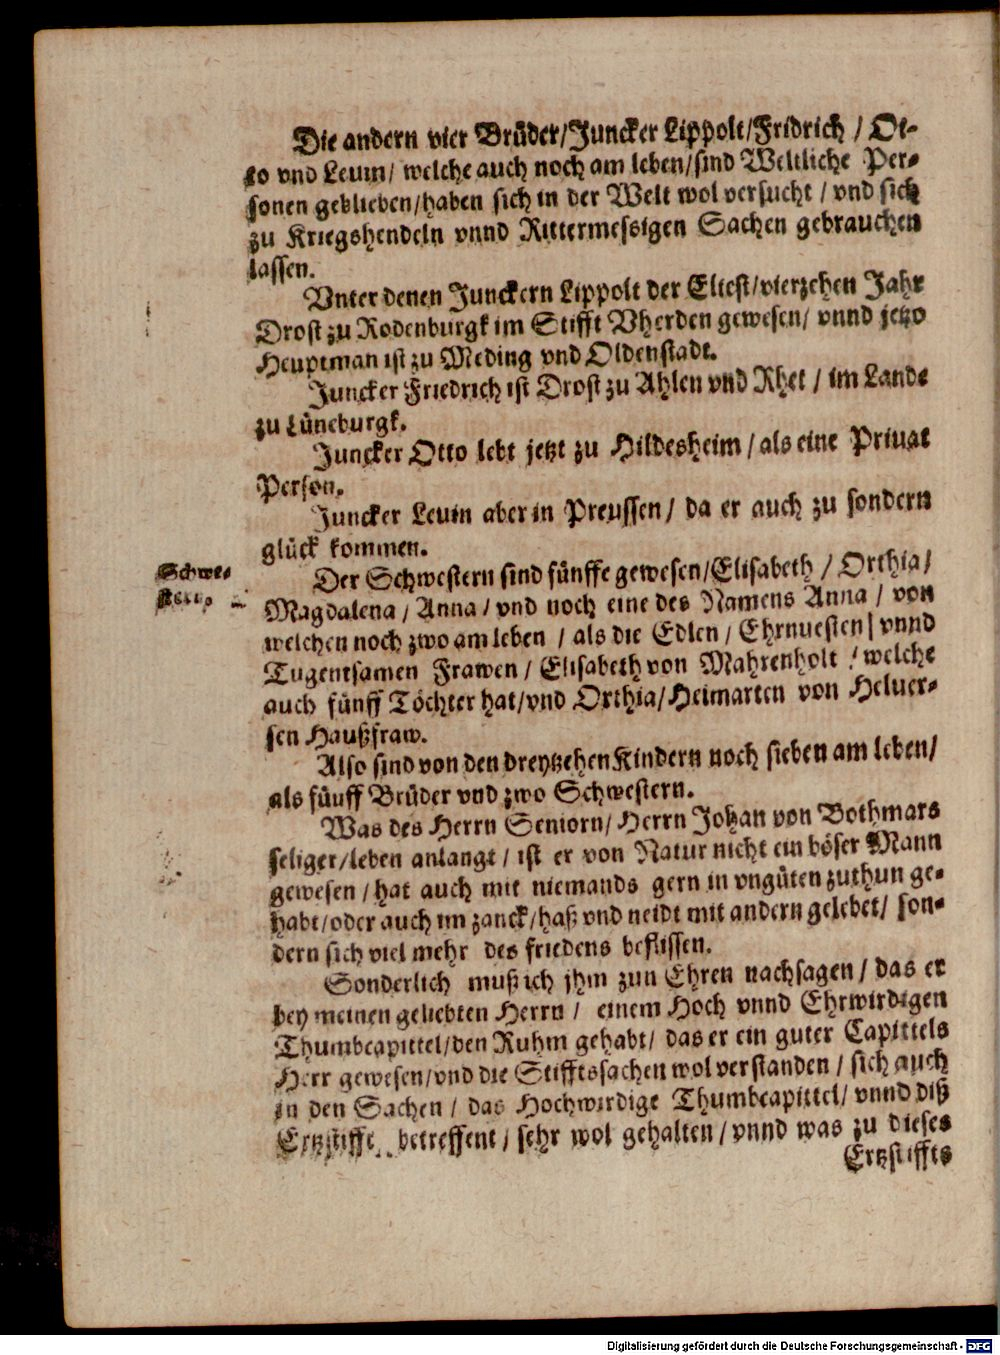 Die andern vier Brüder/Juncker Lippolt/Fridrich / Ot-
to vnd Leuin/ welche auch noch am leben/sind Weltliche Per-
sonen geblieben/haben sich in der Welt wol versucht / vnd sich
zu Kriegshendeln vnnd Rittermessigen Sachen gebrauchen
lassen.
Vnter denen Junckern Lippolt der Eltest/vierzehen Jahr
Drost zu Rodenburgk im Stifft Vherden gewesen/ vnnd jetzo
Heuptman ist zu Meding vnd Oldenstadt.
Juncker Friedrich ist Drost zu Ahlen vnd Rhet / im Lande
zu Lüneburgk.
Juncker Otto lebt jetzt zu Hildesheim / als eine Priuat
Person.
Juncker Leuin aber in Preussen / da er auch zu sondern
glück kommen.
Schwe-
stern.
Der Schwestern sind fünffe gewesen/Elisabeth / Orthia/
Magdalena / Anna / vnd noch eine des Namens Anna / von
welchen noch zwo am leben / als die Edlen / Ehrnuesten/ vnnd
Tugentsamen Frawen / Elisabeth von Mahrenholt / welche
auch fünff Töchter hat/vnd Orthia/Heimarten von Heluer-
sen Haußfraw.
Also sind von den dreytzehen Kindern noch sieben am leben/
als fünff Brüder vnd zwo Schwestern.
Was des Herrn Seniorn/ Herrn Johan von Bothmars
seliger/leben anlangt / ist er von Natur nicht ein böser Mann
gewesen / hat auch mit niemands gern in vngüten zuthun ge-
habt/oder auch im zanck/haß vnd neidt mit andern gelebet/ son-
dern sich viel mehr des friedens beflissen.
Sonderlich muß ich jhm zun Ehren nachsagen / das er
bey meinen geliebten Herrn / einem Hoch vnnd Ehrwirdigen
Thumbcapittel/den Ruhm gehabt/ das er ein guter Capittels
Herr gewesen/vnd die Stifftssachen wol verstanden / sich auch
in den Sachen / das Hochwirdige Thumbcapittel/ vnnd diß
Ertzstifft betreffent / sehr wol gehalten / vnnd was zu dieses
Ertzstiffts
Digitalisierung gefördert durch die Deutsche Forschungsgemeinschaft - DFG